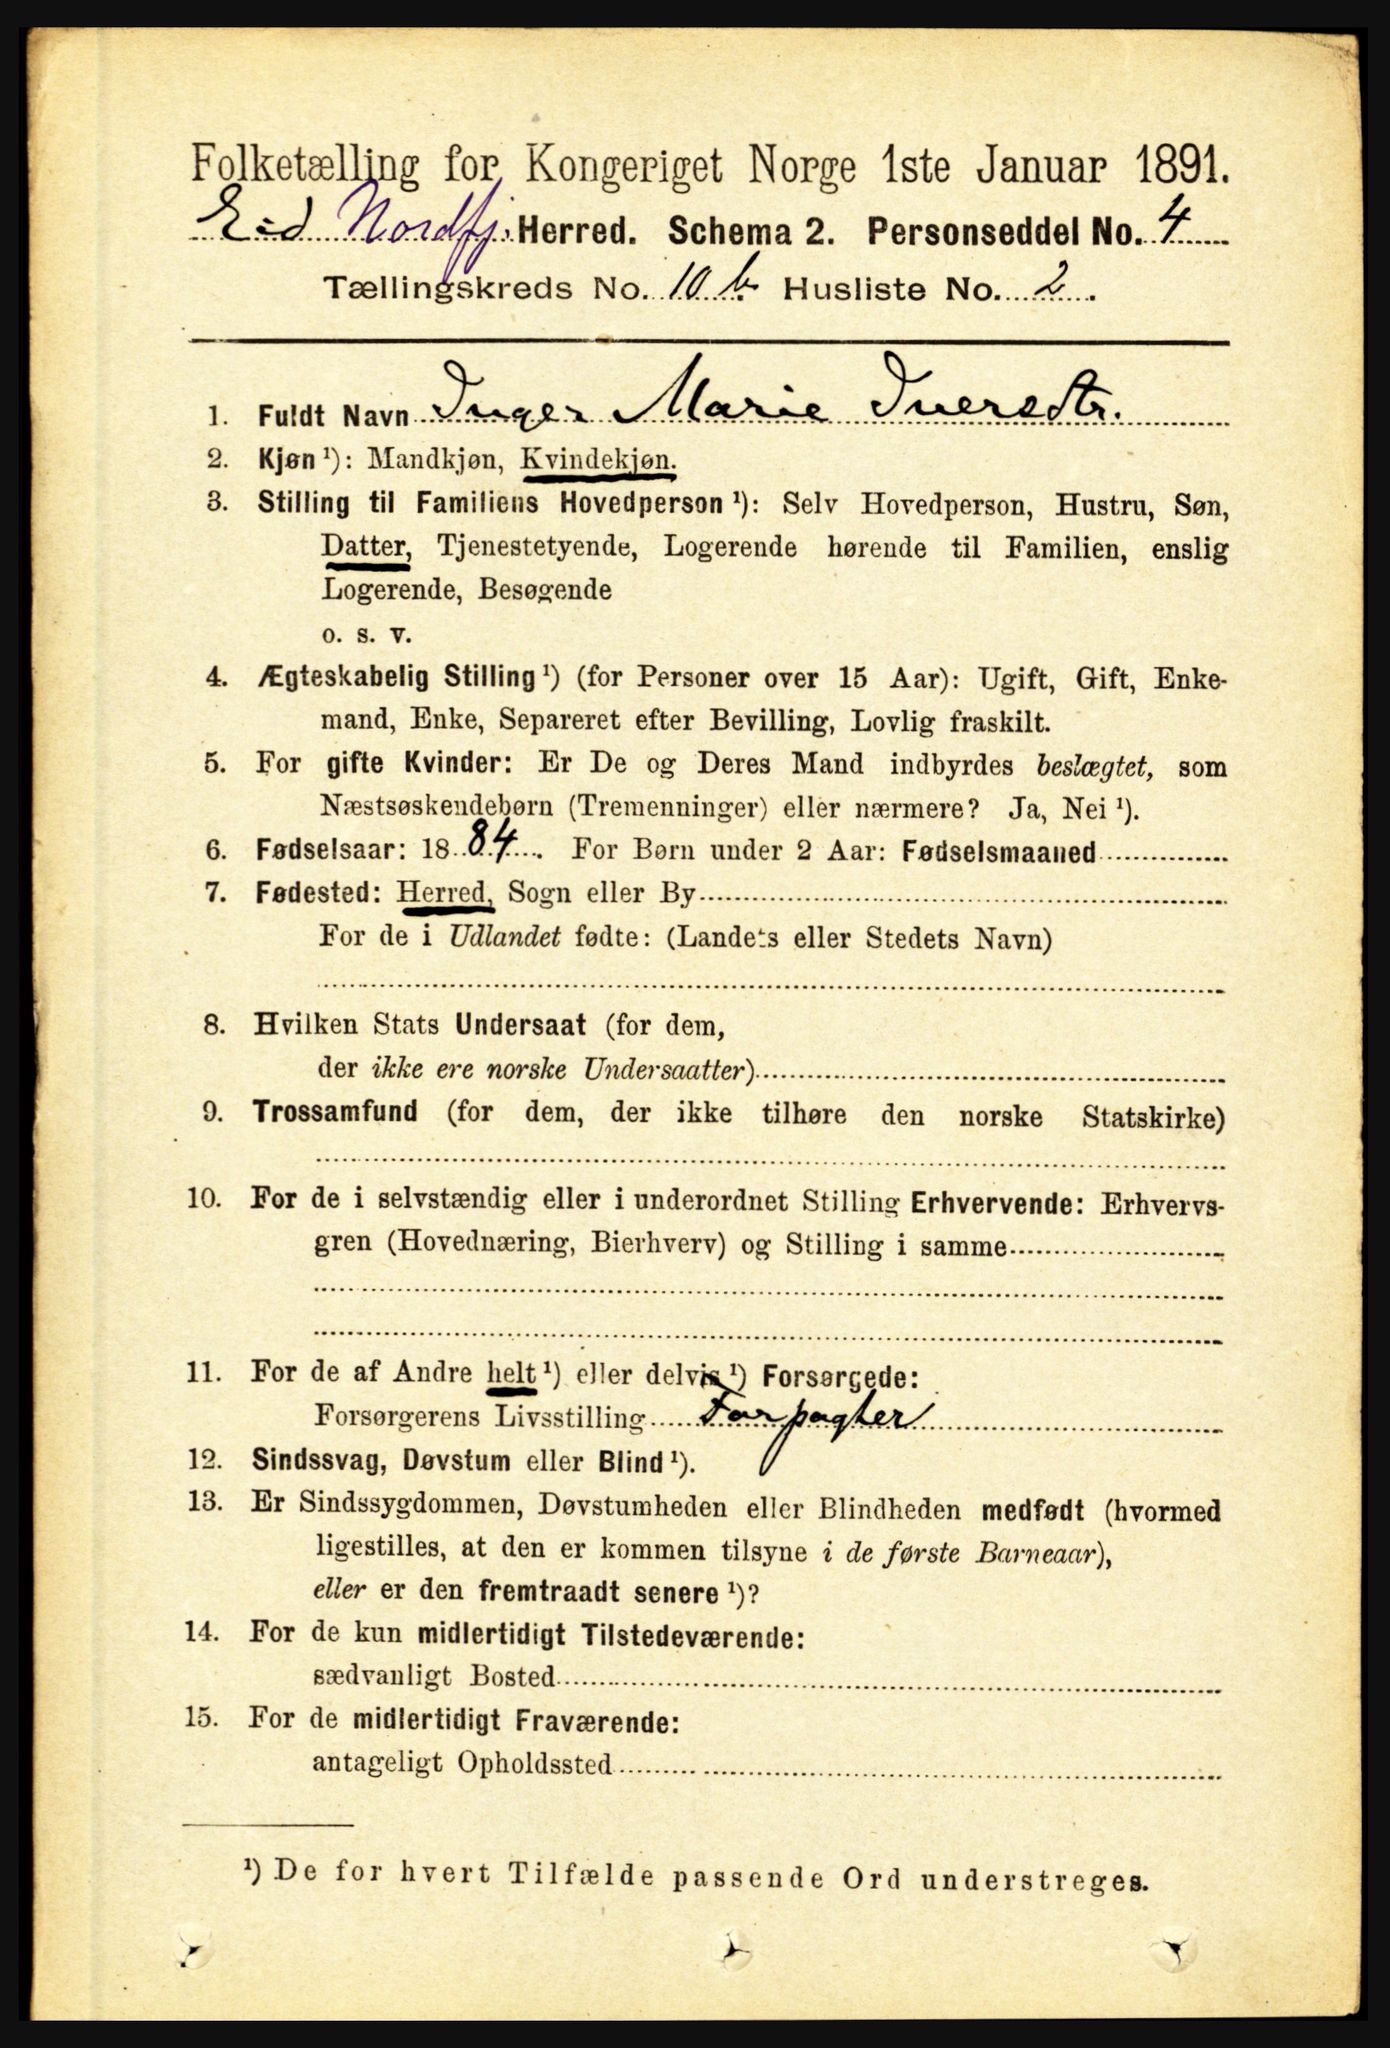 Folketælling for Kongeriget Norge 1ste Januar 1891.
Eid Nordfj. Herred. Schema 2. Personseddel No. 4
Tællingskreds No. 10 b. Husliste No. 2.
1. Fuldt Navn Inger Marie Iversdtr.
2. Kjøn ¹): Mandkjøn, Kvindekjøn.
3. Stilling til Familiens Hovedperson ¹): Selv Hovedperson, Hustru, Søn,
Datter, Tjenestetyende, Logerende hørende til Familien, enslig
Logerende, Besøgende
o. s. v.
4. Ægteskabelig Stilling ¹) (for Personer over 15 Aar): Ugift, Gift, Enke-
mand, Enke, Separeret efter Bevilling, Lovlig fraskilt.
5. For gifte Kvinder: Er De og Deres Mand indbyrdes beslægtet, som
Næstsøskendebørn (Tremenninger) eller nærmere? Ja, Nei ¹).
6. Fødselsaar: 1884. For Børn under 2 Aar: Fødselsmaaned
7. Fødested: Herred, Sogn eller By
For de i Udlandet fødte: (Landets eller Stedets Navn)
8. Hvilken Stats Undersaat (for dem,
der ikke ere norske Undersaatter)
9. Trossamfund (for dem, der ikke tilhøre den norske Statskirke)
10. For de i selvstændig eller i underordnet Stilling Erhvervende: Erhvervs-
gren (Hovednæring, Bierhverv) og Stilling i samme
11. For de af Andre helt ¹) eller delvis ¹) Forsørgede:
Forsørgerens Livsstilling Forpagter
12. Sindssvag, Døvstum eller Blind ¹).
13. Er Sindssygdommen, Døvstumheden eller Blindheden medfødt (hvormed
ligestilles, at den er kommen tilsyne i de første Barneaar),
eller er den fremtraadt senere ¹)?
14. For de kun midlertidigt Tilstedeværende:
sædvanligt Bosted
15. For de midlertidigt Fraværende:
antageligt Opholdssted
¹) De for hvert Tilfælde passende Ord understreges.